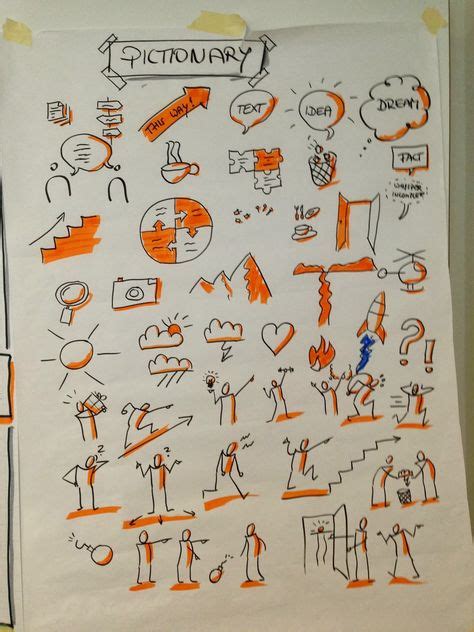 PICTIONARY
THIS WAY!
TEXT
IDEA
DREAM
FACT
?
!
z
z